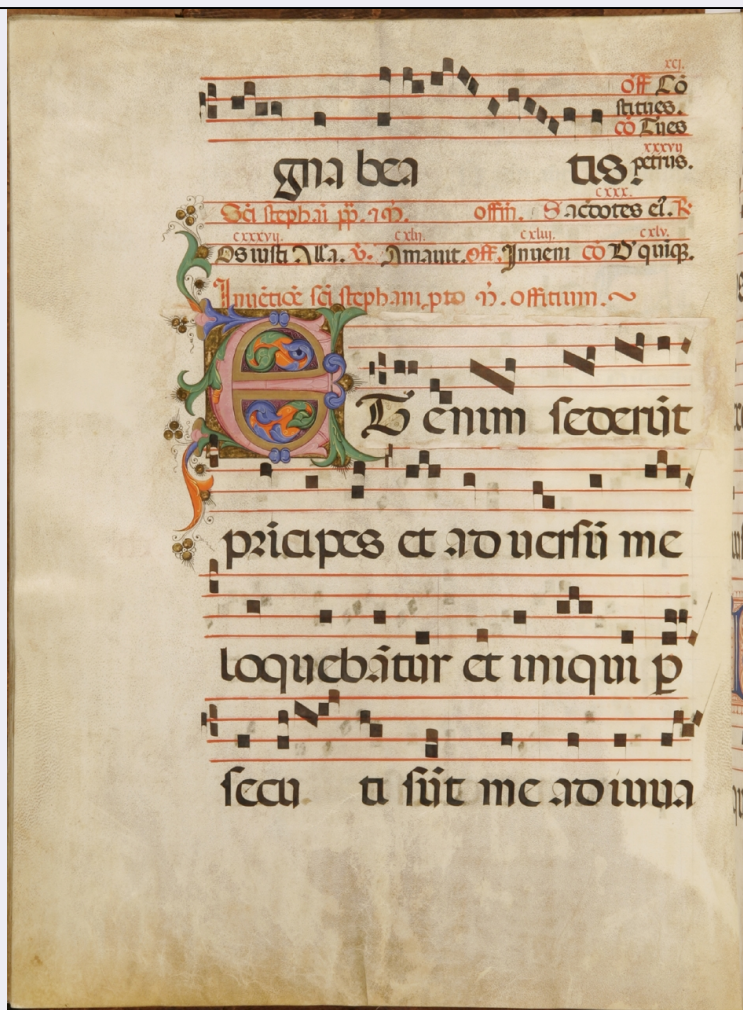 xcj.
off Cō
stitues.
cō Tues
xxxvij
gna bea tis. petrus.
cxxx.
Sci stephāi pp. ⁊ m̄. offm̄. Sacdotes ei. R
cxxxvij. cxlij. cxliij. cxlv.
Os iusti Alla. v. Amauit. off. Inueni cō Dn̄i quiq.
Inuētiōe sci stephani, pto m̄. offitium.
ET enim sederūt
prīcipes et aduersū me
loquebātur et iniqui p̄
secu ti sūt me adiuua